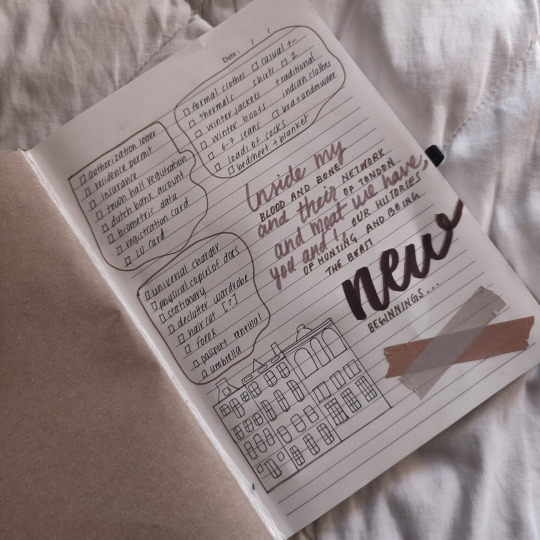 Date: / /
□ authorization letter
□ residence permit
□ insurance
□ town hall registration
□ dutch bank account
□ biometric data
□ registration card
□ LU card
□ formal clothes □ casual t-shirts
□ thermals □ 2 traditional indian clothes
□ winter jackets
□ winter boots
□ 6-7 jeans □ bra + underwear
□ loads of socks
□ bedsheet + blanket
□ universal charger
□ physical copies of docs
□ stationary
□ declutter wardrobe
□ haircut [?]
□ forex
□ passport renewal
□ umbrella
Inside my
BLOOD AND BONE NETWORK
and their OF TENDON
and meat we have,
you and I, OUR HISTORIES
OF HUNTING AND BEING
THE BEAST
new
BEGINNINGS...